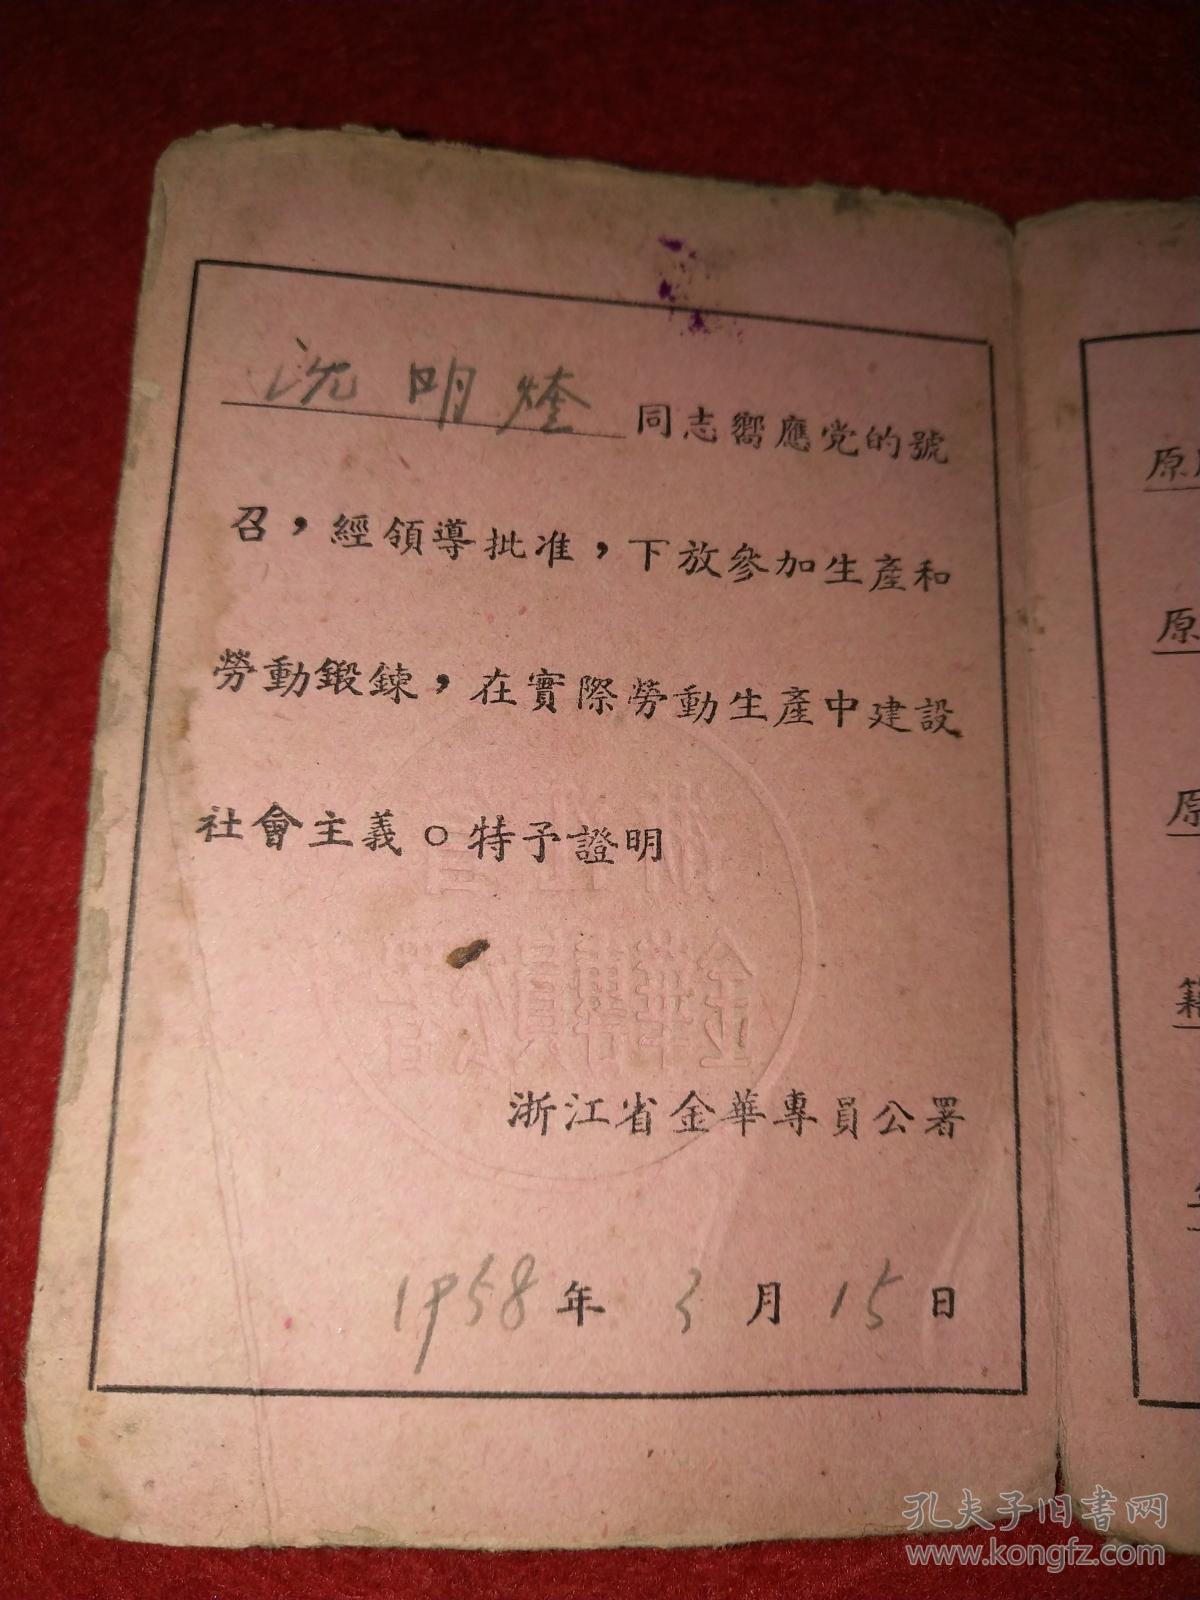 沈明煃同志嚮應党的號
召，經領導批准，下放參加生產和
勞動鍛鍊，在實際勞動生產中建設
社會主義。特予證明
浙江省
金華專員公署
浙江省金華專員公署
1958年3月15日
原
原
原
籍
孔夫子旧书网
www.kongfz.com